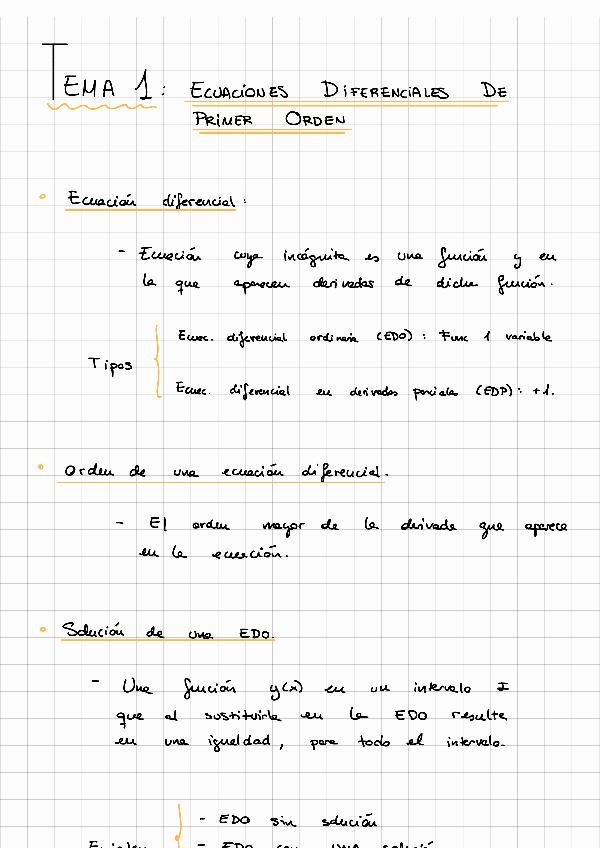 TEMA 1: ECUACIONES DIFERENCIALES DE
PRIMER ORDEN
Ecuación diferencial:
- Ecuación cuya incógnita es una función y en
la que aparecen derivadas de dicha función.
Ecuac. diferencial ordinaria (EDO): Func 1 variable
Tipos
Ecuac. diferencial en derivadas parciales (EDP): +1.
Orden de una ecuación diferencial.
- El orden mayor de la derivada que aparece
en la ecuación.
Solución de una EDO.
- Una función y(x) en un intervalo I
que al sustituirla en la EDO resulte
en una igualdad, para todo el intervalo.
- EDO sin solución
- EDO con UNA